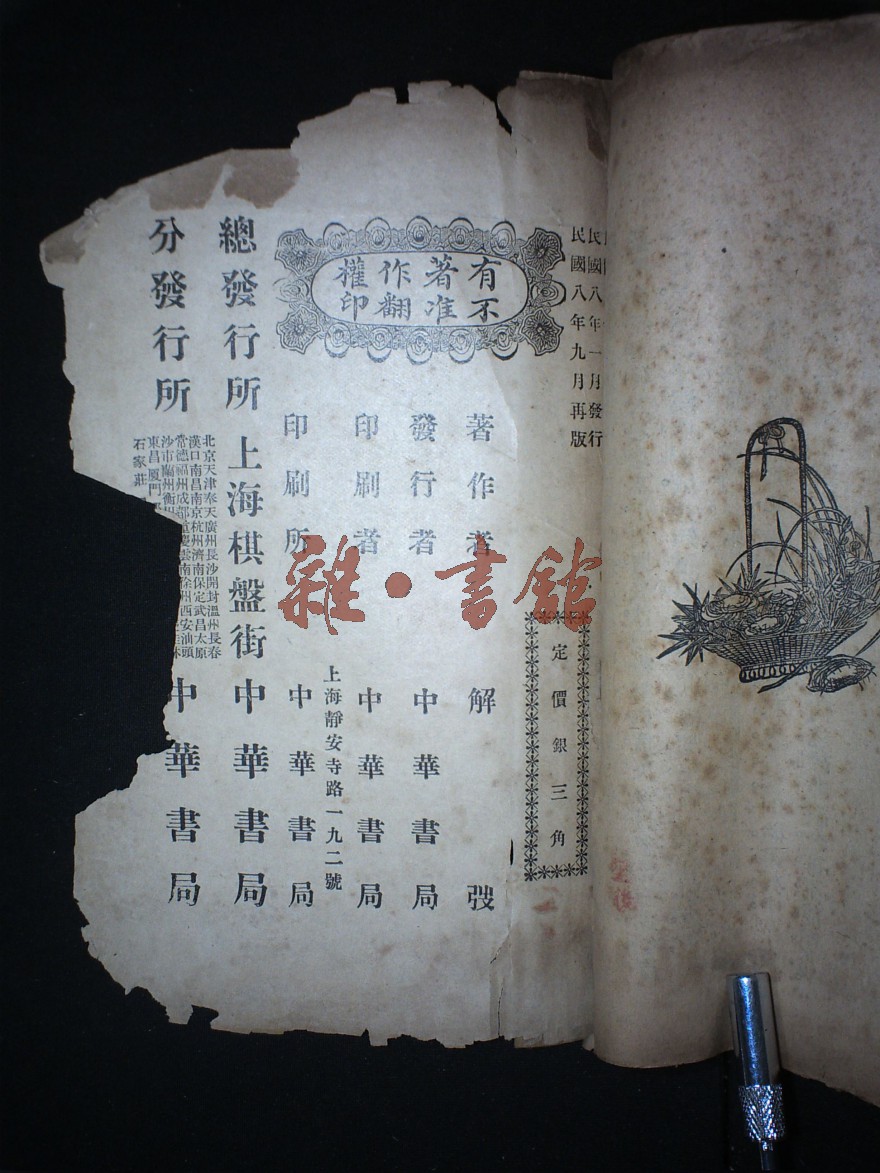 民國八年一月發行
民國八年九月再版
定價銀三角
有著作權
不准翻印
著作者 解弢
發行者 中華書局
印刷者 中華書局
上海靜安寺路一九二號
印刷所 中華書局
總發行所 上海棋盤街 中華書局
分發行所
北京天津奉天廣州長沙開封溫州長春
漢口南昌南京杭州濟南保定武昌太原
常德福州成都重慶雲南徐州西安汕頭
沙市蘭州衡州
東昌廈門
石家莊
中華書局
雜·書館